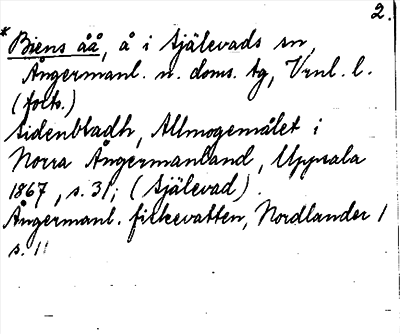 2.
* Biens åå, å i Själevads sn,
Ångermanl. n. doms. tg, Vrnl. l.
(forts.)
Sidenbladh, Allmogemålet i
Norra Ångermanland, Uppsala
1867, s. 31; (Själevad).
Ångermanl. fiskevatten, Nordlander 1
s. 11